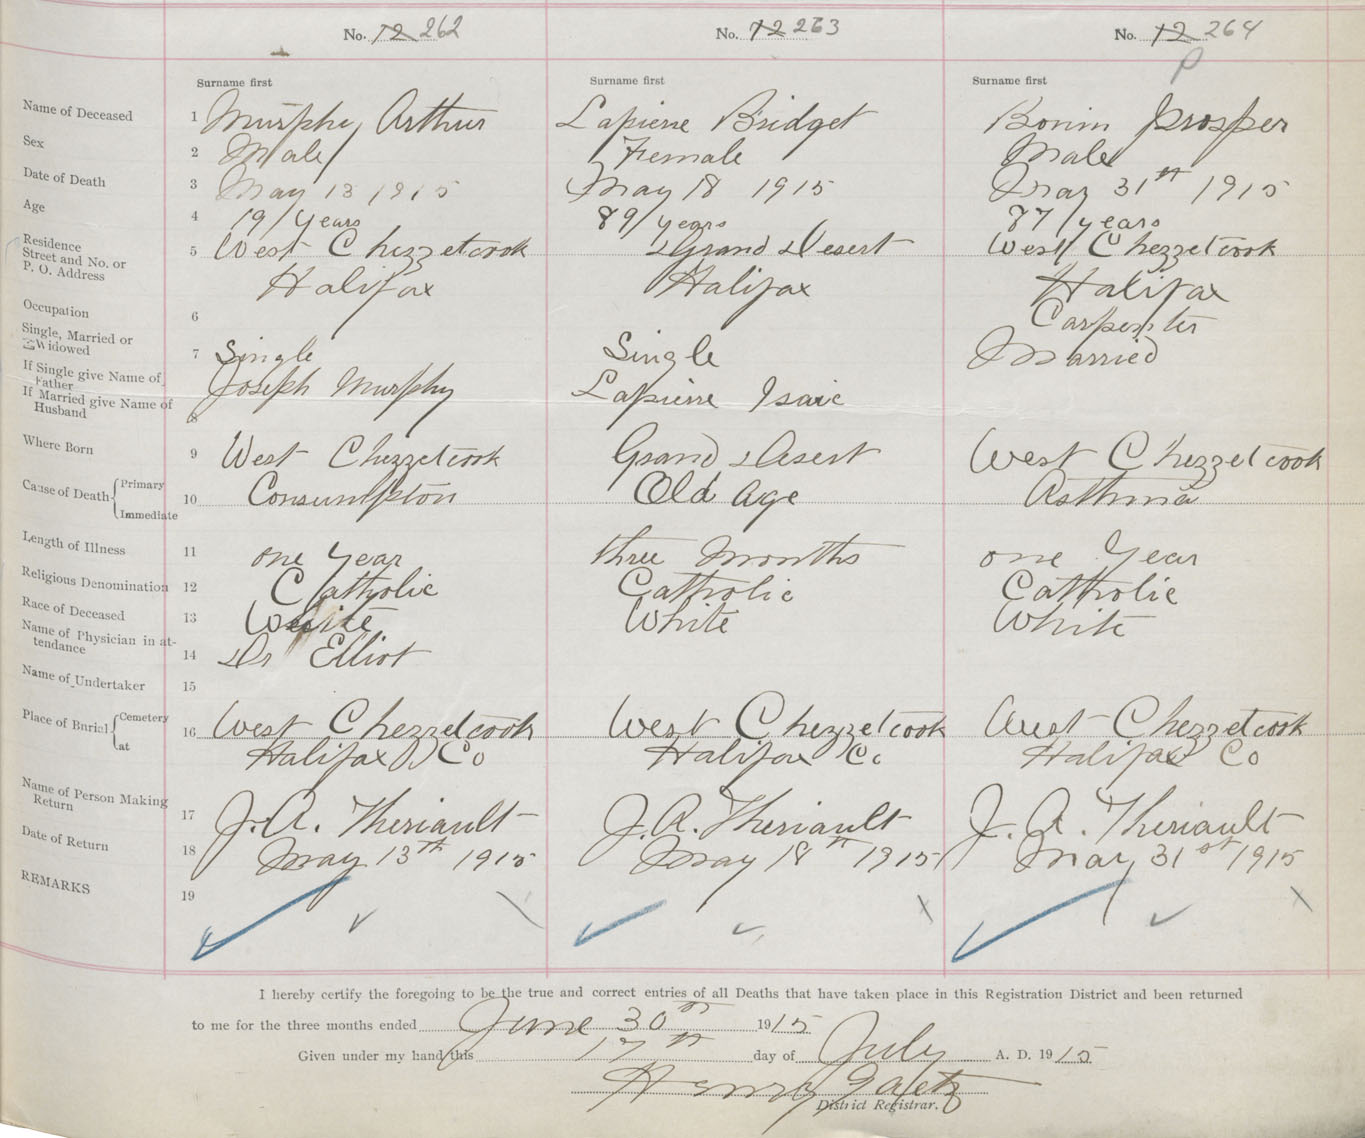 No. 12 262 No. 12 263 No. 12 264
P
Surname first Surname first Surname first
Name of Deceased 1 Murphy Arthur Lapierre Bridget Bonin Prosper
Sex 2 Male Female Male
Date of Death 3 May 13 1915 May 18 1915 May 31st 1915
Age 4 19 years 89 years 87 years
Residence Street and No. or P. O. Address 5 West Chezzetcook Grand Desert West Chezzetcook
Halifax Halifax Halifax
Occupation 6 Carpenter
Single, Married or Widowed 7 Single Single Married
If Single give Name of Father Joseph Murphy Lapierre Isaic
If Married give Name of Husband 8
Where Born 9 West Chezzetcook Grand Desert West Chezzetcook
Cause of Death Primary 10 Consumpton Old Age Asthma
Immediate
Length of Illness 11 one Year three Months one Year
Religious Denomination 12 Catholic Catholic Catholic
Race of Deceased 13 White White White
Name of Physician in attendance 14 Dr Elliot
Name of Undertaker 15
Place of Burial Cemetery at 16 West Chezzetcook West Chezzetcook West Chezzetcook
Halifax Co Halifax Co Halifax Co
Name of Person Making Return 17 J. A. Theriault J. A. Theriault J. A. Theriault
Date of Return 18 May 13th 1915 May 18th 1915 May 31st 1915
REMARKS 19
I hereby certify the foregoing to be the true and correct entries of all Deaths that have taken place in this Registration District and been returned
to me for the three months ended June 30th 1915
Given under my hand this 17th day of July A. D. 1915
Henry Gaetz
District Registrar.